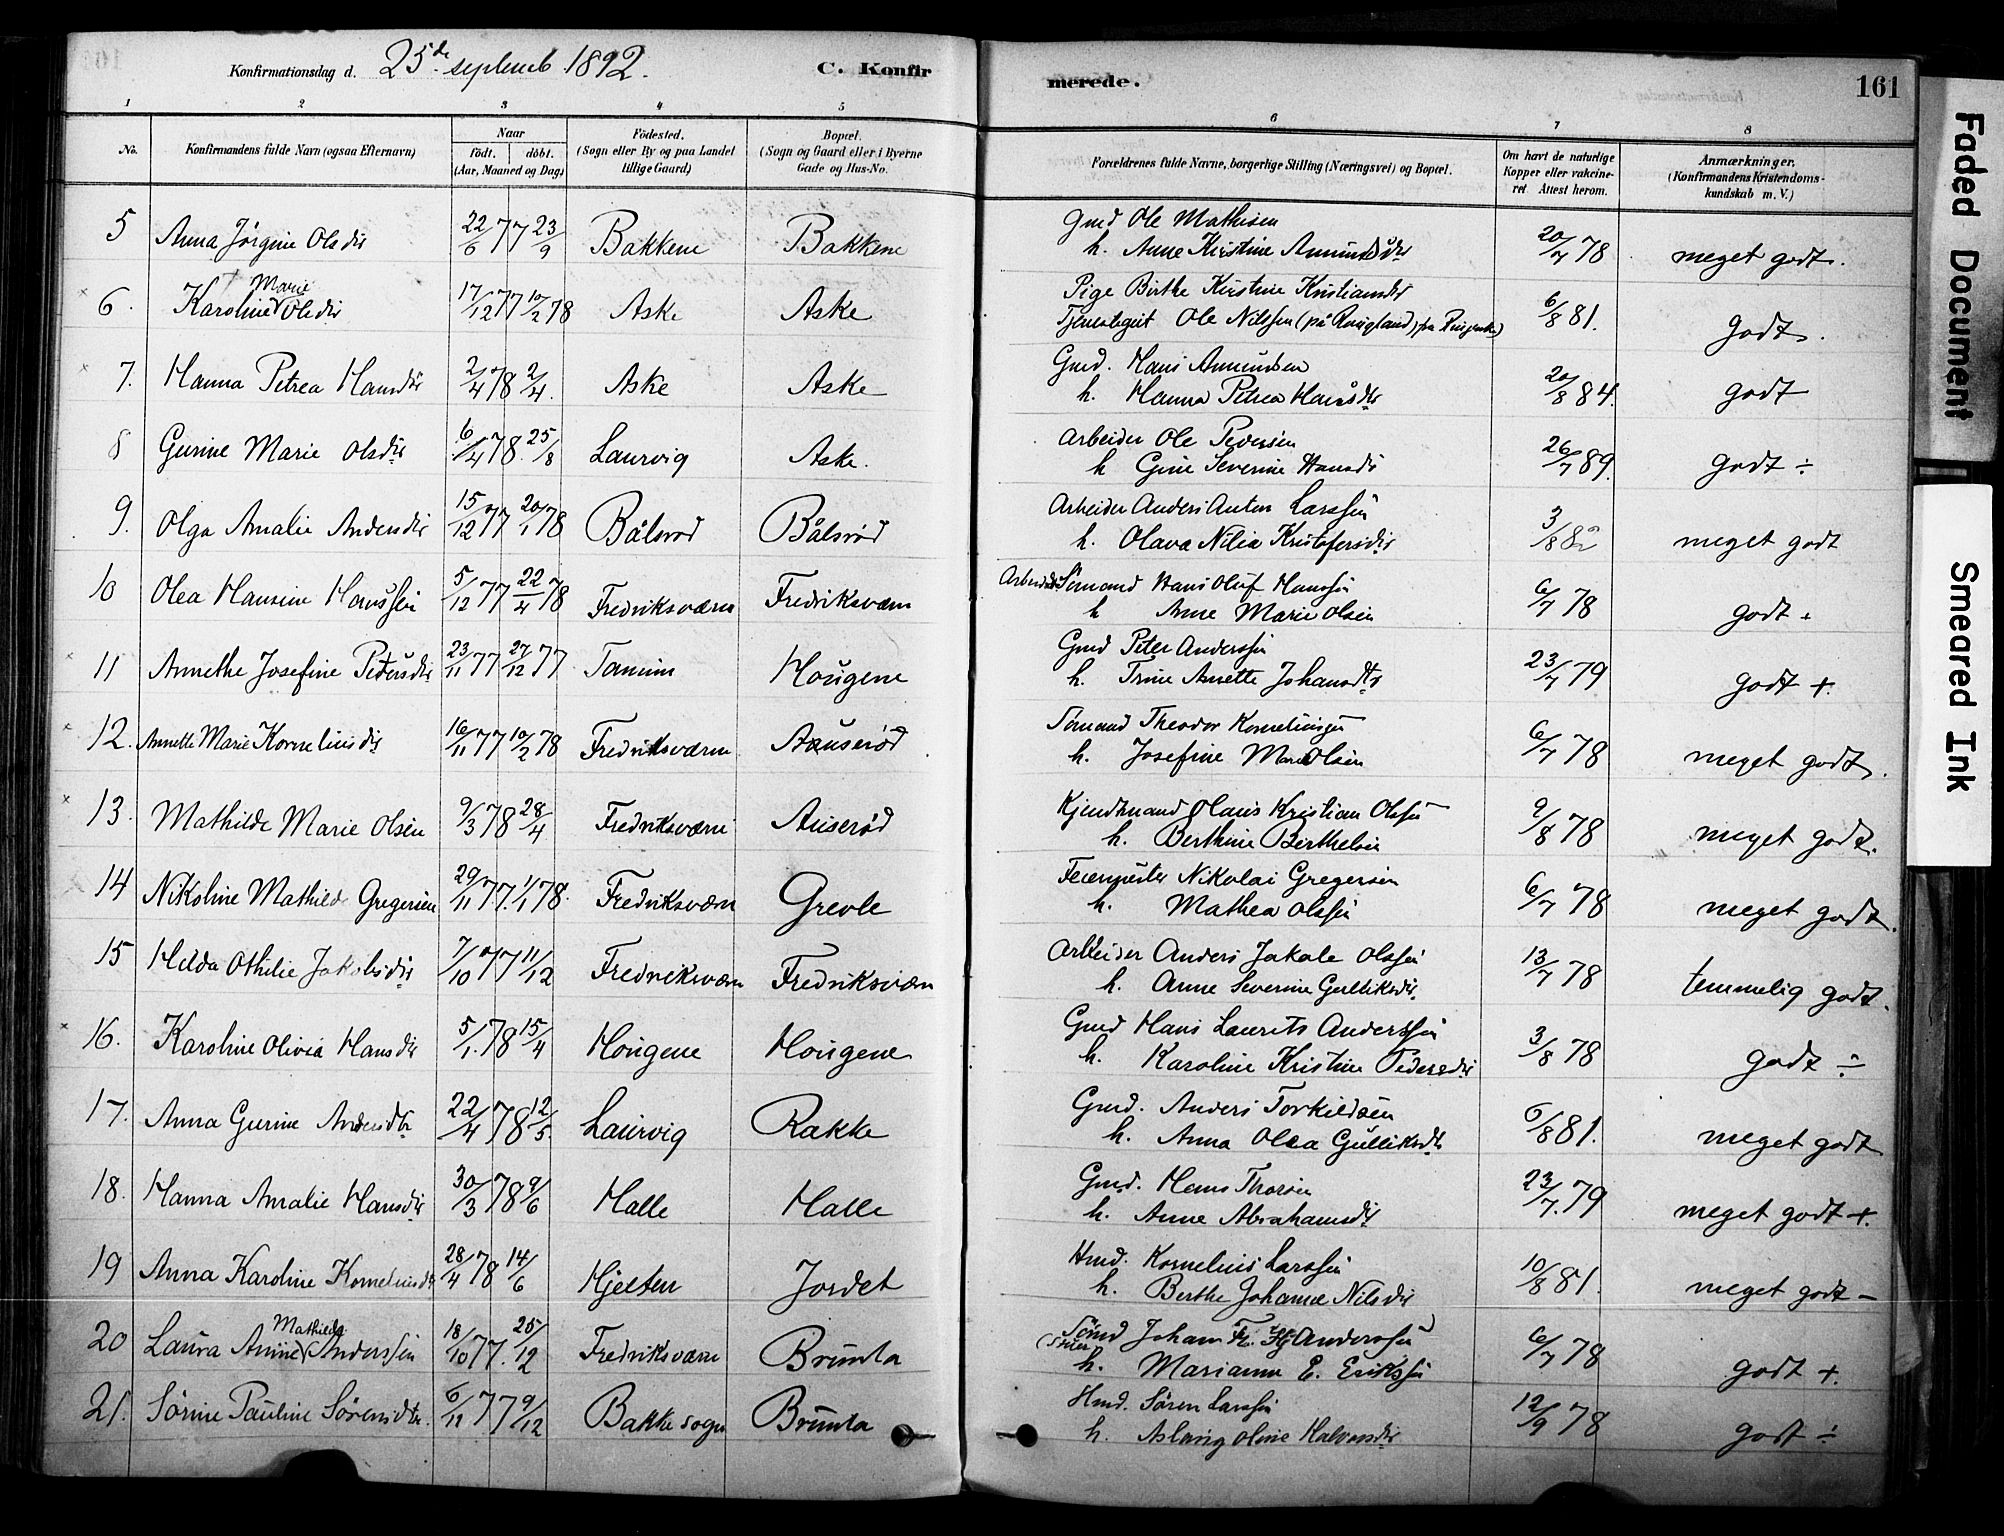 Konfirmationsdag d. 25de septemb 1892.
C. Konfirmerede.
161
1 2 3 4 5 6 7 8
No.
Konfirmandens fulde Navn (ogsaa Efternavn)
Naar født. døbt. (Aar, Maaned og Dag)
Födested. (Sogn eller By og paa Landet tillige Gaard)
Bopæl. (Sogn og Gaard eller i Byerne Gade og Hus-No.
Forældrenes fulde Navne, borgerlige Stilling (Næringsvei) og Bopæl.
Om havt de naturlige Kopper eller vakcineret Attest herom.
Anmærkninger. (Konfirmandens Kristendomskundskab m. V.)
5 Anna Jørgine Olsdtr 22/6 77 23/9 Bakkene Bakkene Gmd Ole Mathisen 20/7 78 meget godt.
h. Anne Kirstine Amundsdtr
6. Karoline Marie Olsdtr 17/12 77 10/2 78 Aske Aske Pige Birthe Kirstine Kristiansdtr 6/8 81. godt.
Ole Nilssen
7. Hanna Petrea Hansdtr 2/4 78 2/4. Aske Aske Gmd. Hans Amundsen 20/8 84. godt
h. Hanna Petrea Hansdtr
8 Gurine Marie Olsdtr 6/4 78. 25/8 Laurvig Aske. Arbeider Ole Pedersen 26/7 89. godt ÷
h Gine Severine Hansdtr
9. Olga Amalie Andersdtr 15/12 77 20/1 78 Bålsrød Bålsrød Arbeider Anders Anton Larssen 3/8 82 meget godt
h. Olava Nilia Kristofersdtr
10 Olea Hansine Hanssen 5/12 77 22/4 78 Fredriksværn Fredriksværn Sømand Hans Oluf Hanssen 6/7 78 godt +
h Anne Marie Olsen
11 Annethe Josefine Petersdtr 23/11 77 27/12 77 Tanum Hougene Gmd Peter Anderssen 23/7 79 godt +.
h. Trine Anette Johansdtr
12. Annette Marie Korneliusdtr 16/11 77 10/2 78 Fredriksværn Auserød Sømand Theodor Korneliussen 6/7 78 meget godt.
h. Josefine Marie Olsen
13. Mathilde Marie Olsen 9/3 78 28/4 Fredriksværn Auserød Kjendtmand Olaus Kristian Olssen 9/8 78 meget godt.
h. Berthine Berthelsen
14 Nikoline Mathilde Gregersen 29/11 77. 1/1 78. Fredriksværn Grevle Nikolai Gregersen 6/7 78 meget godt.
h. Mathea Olssen
15 Helda Othilie Jakobsdtr 7/10 77 11/12 Fredriksværn Fredriksværn Arbeider Anders Jakob Olssen 13/7 78 temmelig godt.
h. Anne Severine Gulliksdtr
16. Karoline Olivia Hansdtr 5/1. 78 15/4 Hougene Hougene Gmd Hans Laurits Anderssen 3/8 78 godt ÷
h. Karoline Kristine Pedersdtr
17. Anna Gurine Andersdtr 22/4 78 12/5. Laurvig Rakke Gmd. Anders Torkildsen 6/8 81. meget godt
h. Anna Olea Gulliksdtr
18. Hanna Amalie Hansdtr 30/3 78 9/6 Halle Halle Gmd. Hans Thorsen 23/7. 79 meget godt +.
h. Anne Abrahamsdtr
19 Anna Karoline Korneliusdtr 28/4 78 14/6 Hjelten Jordet Hmd. Kornelius Larssen 10/8 81. meget godt –
h. Berthe Johanne Nilsdtr
20 Laura Annine Mathilde Anderssen 18/10 77. 25/12 Fredriksværn Brunla Sømd Johan Fr. Anderssen 6/7 78 godt +.
h. Marianne E. Erikssen
21. Sørine Pauline Sørensdtr. 6/11 77 9/12 Bakke sogn Brunla Hmd. Søren Larssen 12/9 78 godt ÷
h. Aslaug Oline Halvorsdtr
Faded Document
Smeared Ink